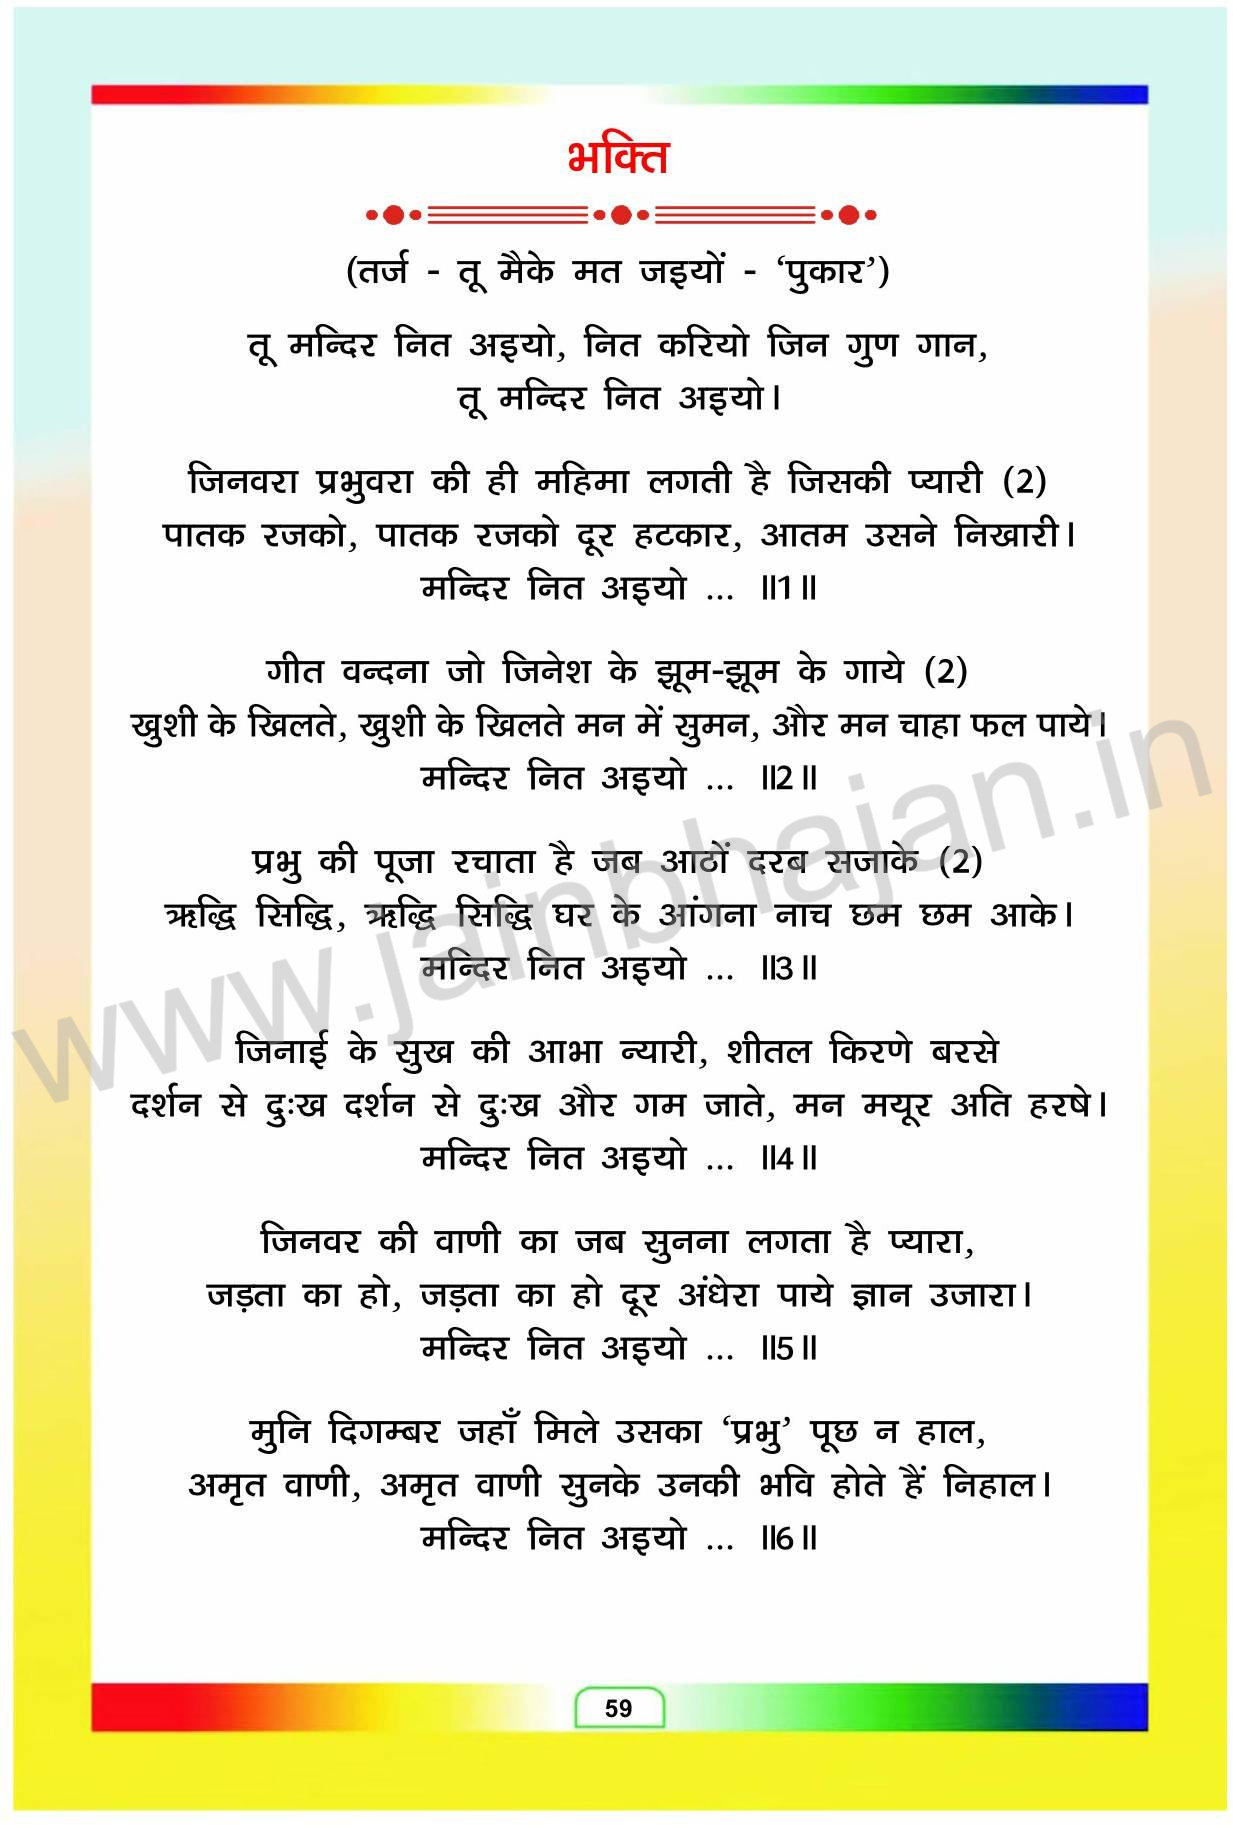 भक्ति
(तर्ज - तू मैके मत जइयों - ‘पुकार’)
तू मन्दिर नित अइयो, नित करियो जिन गुण गान,
तू मन्दिर नित अइयो।
जिनवरा प्रभुवरा की ही महिमा लगती है जिसकी प्यारी (2)
पातक रजको, पातक रजको दूर हटकार, आतम उसने निखारी।
मन्दिर नित अइयो ... ॥1॥
गीत वन्दना जो जिनेश के झूम-झूम के गाये (2)
खुशी के खिलते, खुशी के खिलते मन में सुमन, और मन चाहा फल पाये।
मन्दिर नित अइयो ... ॥2॥
प्रभु की पूजा रचाता है जब आठों दरब सजाके (2)
ऋद्धि सिद्धि, ऋद्धि सिद्धि घर के आंगना नाच छम छम आके।
मन्दिर नित अइयो ... ॥3॥
जिनाई के सुख की आभा न्यारी, शीतल किरणे बरसे
दर्शन से दुःख दर्शन से दुःख और गम जाते, मन मयूर अति हरषे।
मन्दिर नित अइयो ... ॥4॥
जिनवर की वाणी का जब सुनना लगता है प्यारा,
जड़ता का हो, जड़ता का हो दूर अंधेरा पाये ज्ञान उजारा।
मन्दिर नित अइयो ... ॥5॥
मुनि दिगम्बर जहाँ मिले उसका ‘प्रभु’ पूछ न हाल,
अमृत वाणी, अमृत वाणी सुनके उनकी भवि होते हैं निहाल।
मन्दिर नित अइयो ... ॥6॥
59
www.jainbhajan.in